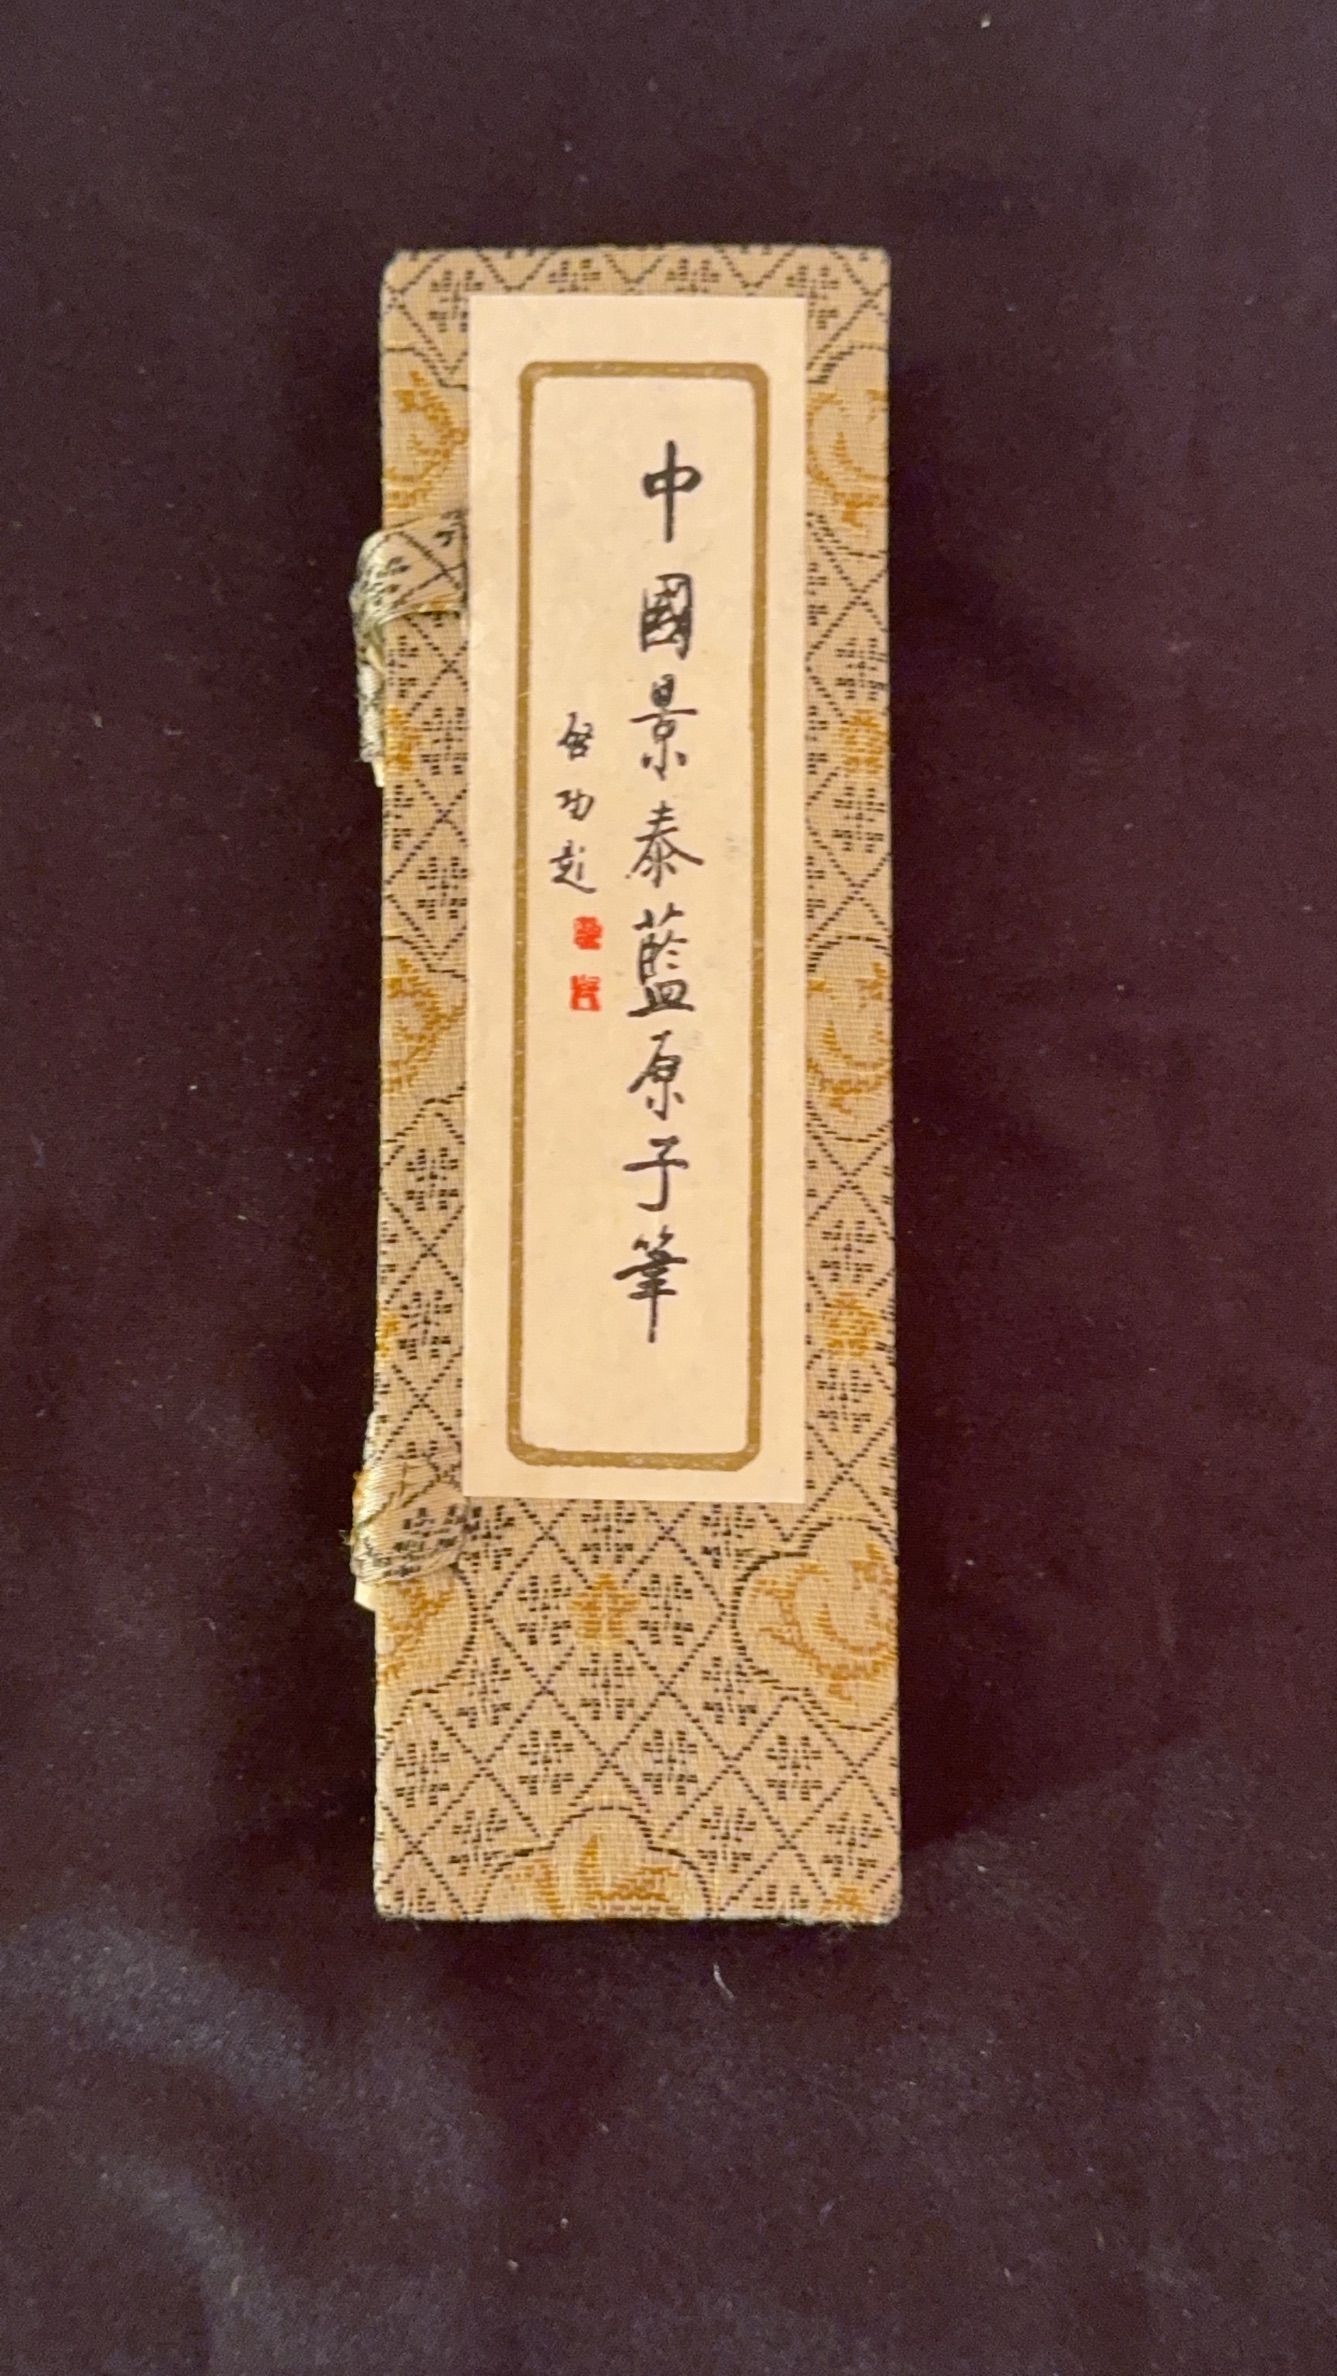 中國景泰藍原子筆
啓功題